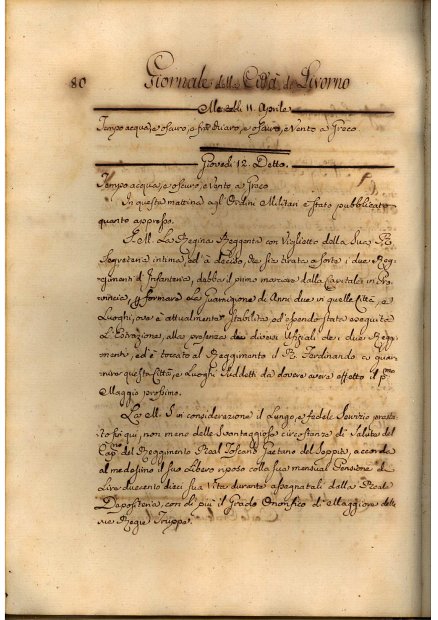 80 Giornale della Città di Livorno
Mercoldi 11. Aprile
Tempo acqua, e oscuro, e oscuro, e Vento a Greco
Giovedi 12. Detto.
Tempo acqua, e oscuro, e Vento a Greco
In questa mattina agl' Ordini Militari è stato pubblicato
quanto appresso.
S. M. La Regina Reggente con Viglietto della Sua R.
Segreteria intima, ed à deciso, che sia tirata a sorte i due Reg-
gimenti d'Infanteria, debba il primo marciare dalla Capitale in Pro-
vincia, a formare la Guarnigione di Anni due in quelle Città, e
Luoghi, ove è attualmente stabilita ed essendo stata eseguita
L'Estrazione, alla presenza dei diversi Ufiziali dei due Regg-
imenti, ed è toccato al Reggimento il R. Ferdinando a guar-
nire questa Città, e Luoghi suddetti da dovere avere effetto il pmo
Maggio prossimo.
La M. S. in considerazione il Lungo, e fedele Servizio presta-
to fin qui, non meno delle Svantaggiose circostanze di Salute del
Capno del Reggimento Real Toscano Gaetano del Soppite, accorda
al medesimo il suo Libero riposo colla sua mensual Pensione di
Lire duecento dieci sua Vita durante assegnatali dalla Reale
Depositeria, con di più il Grado Onorifico di Maggiore delle
sue Regie Truppe.